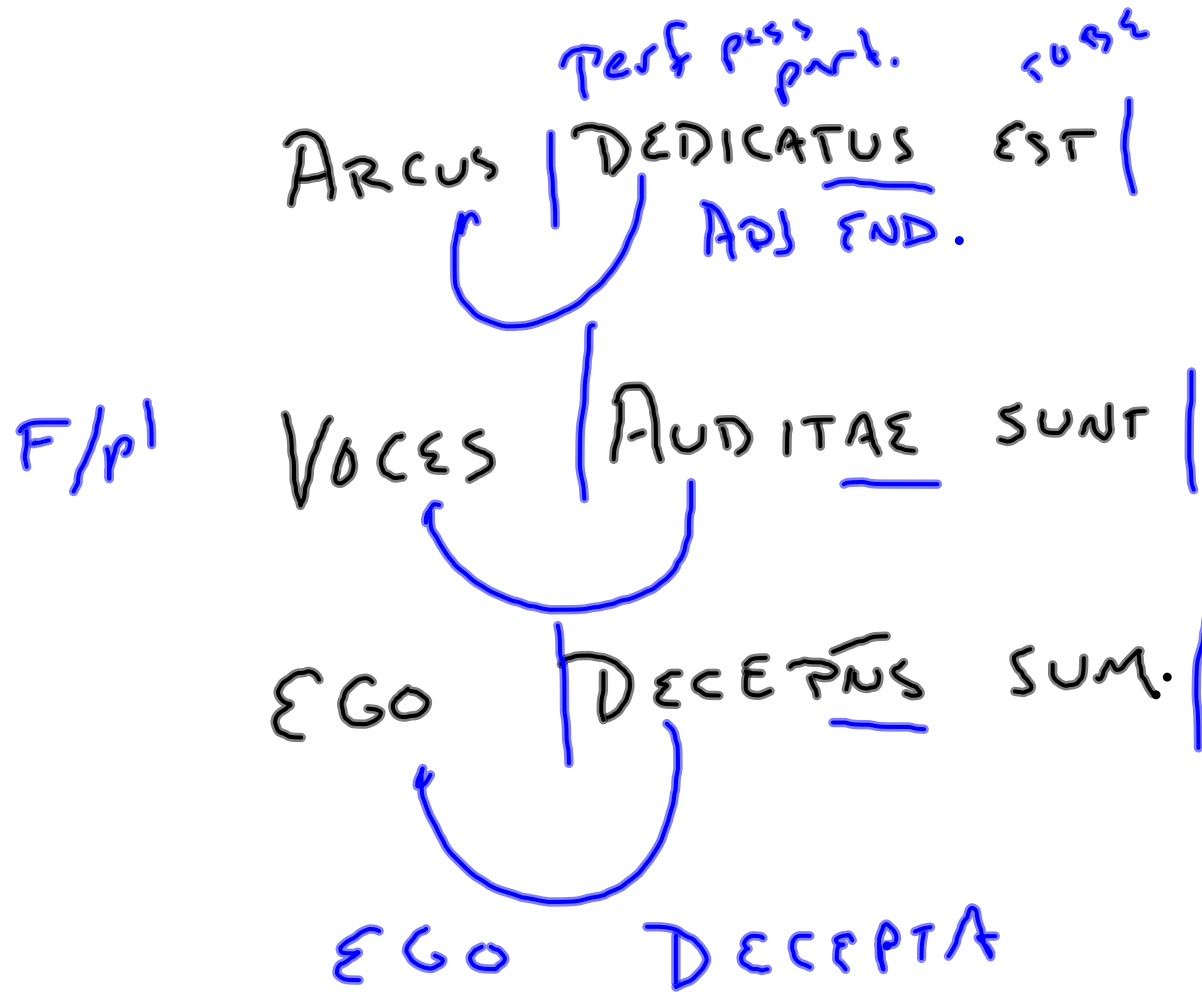 Perf pass part. TO BE
ARCUS DEDICATUS EST
ADJ END.
F/pl VOCES AUDITAE SUNT
EGO DECEPTUS SUM.
EGO DECEPTA